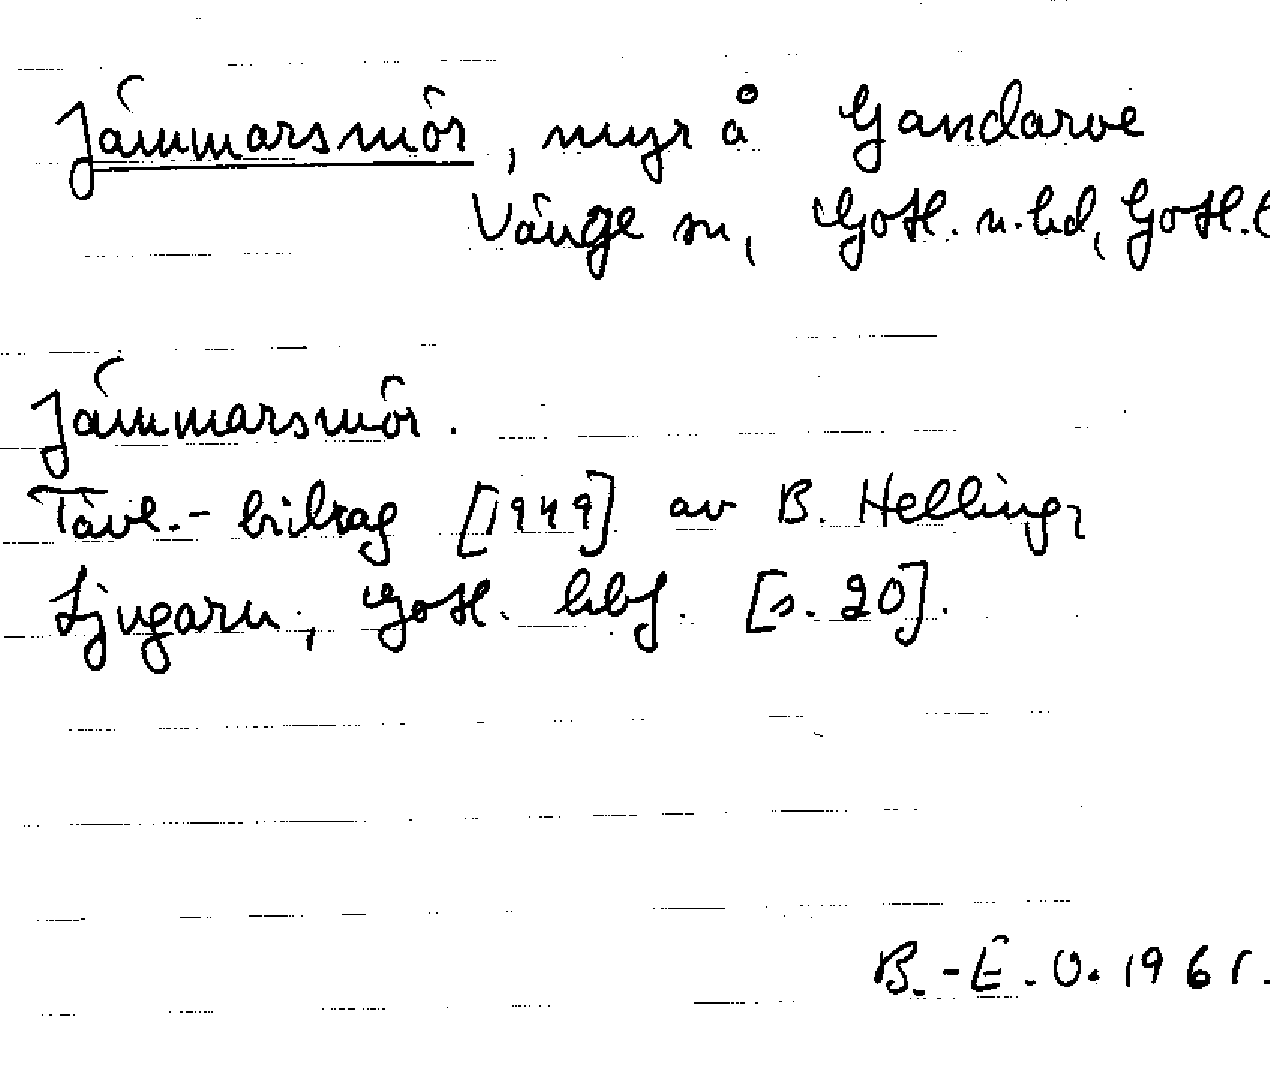 Jämmarsmör, myr å Gandarve
Vänge sn, Gotl. n. hd, Gotl. l
Jämmarsmör.
Tävl.- bidrag [1949] av B. Helling,
Ljugarn, Gotl. hbf. [s. 20].
B.-E. O. 1965.